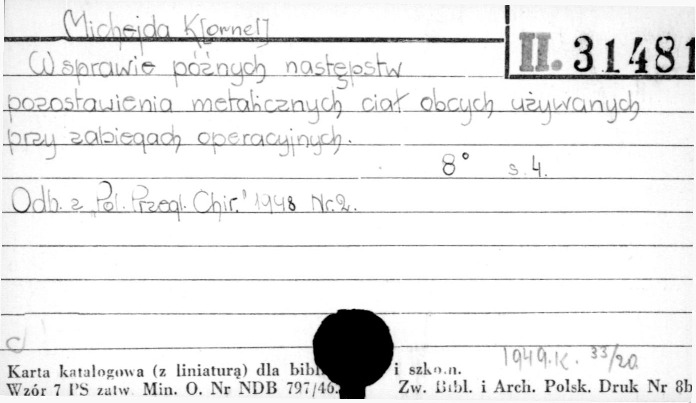 Michejda K[ornel]
II. 31481
W sprawie późnych następstw
pozostawienia metalicznych ciał obcych używanych
przy zabiegach operacyjnych.
8° s. 4.
Odb. z „Pol. Przegl. Chir." 1948 Nr. 2.
1949.K. 33/20
Karta katalogowa (z liniaturą) dla i szkoln.
Wzór 7 PS zatw. Min. O. Nr NDB 797/46. Zw. Bibl. i Arch. Polsk. Druk Nr 8b